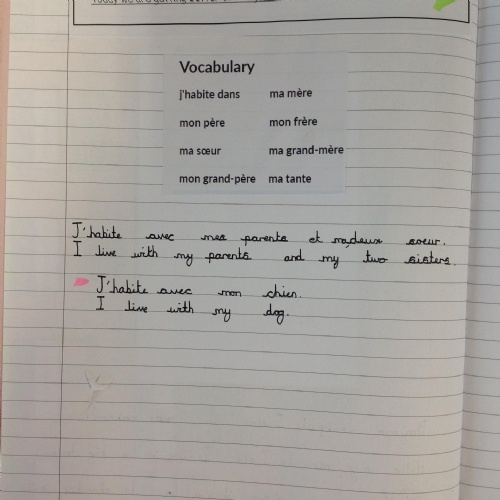 Vocabulary
j'habite dans ma mère
mon père mon frère
ma sœur ma grand-mère
mon grand-père ma tante
J'habite avec mes parents et ma deux soeur.
I live with my parents and my two sisters.
J'habite avec mon chien.
I live with my dog.